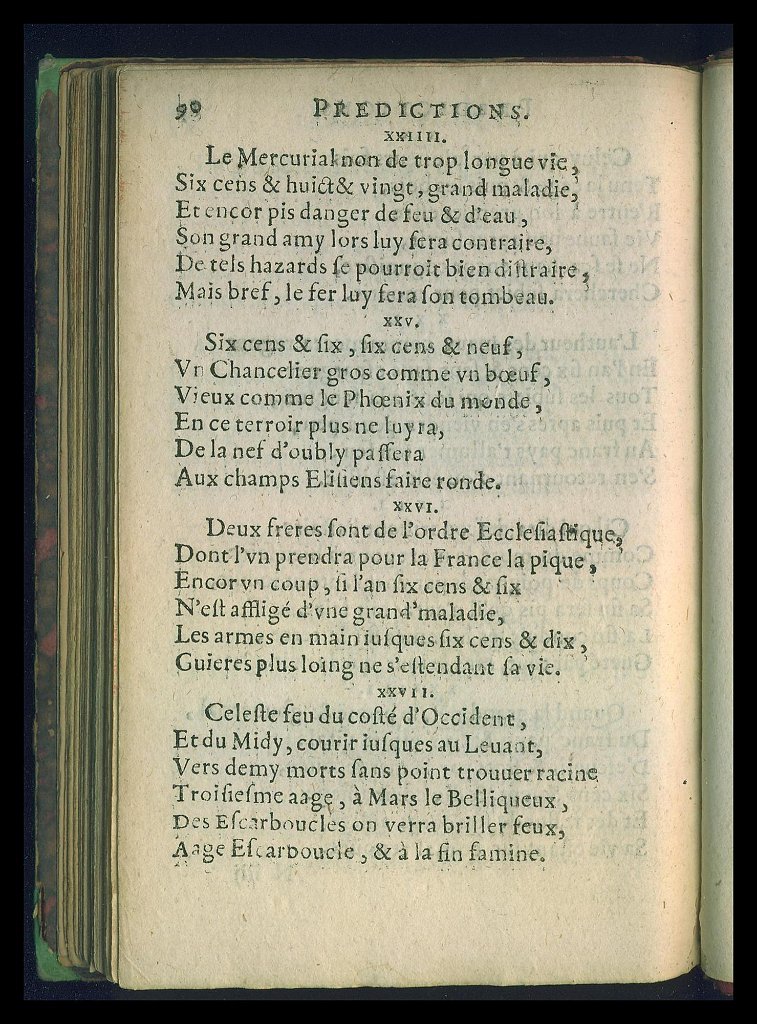 90 PREDICTIONS.
XXIIII.
Le Mercurial non de trop longue vie,
Six cens & huict & vingt, grand maladie,
Et encor pis danger de feu & d'eau,
Son grand amy lors luy ſera contraire,
De tels hazards ſe pourroit bien diſtraire,
Mais bref, le fer luy fera ſon tombeau.
XXV.
Six cens & ſix, ſix cens & neuf,
Vn Chancelier gros comme vn bœuf,
Vieux comme le Phœnix du monde,
En ce terroir plus ne luyra,
De la nef d'oubly paſſera
Aux champs Eliſiens faire ronde.
XXVI.
Deux freres ſont de l'ordre Eccleſiaſtique,
Dont l'vn prendra pour la France la pique,
Encor vn coup, ſi l'an ſix cens & ſix
N'eſt affligé d'vne grand'maladie,
Les armes en main iuſques ſix cens & dix,
Guieres plus loing ne s'eſtendant ſa vie.
XXVII.
Celeſte feu du coſté d'Occident,
Et du Midy, courir iuſques au Leuant,
Vers demy morts ſans point trouuer racine
Troiſieſme aage, à Mars le Belliqueux,
Des Eſcarboucles on verra briller feux,
Aage Eſcarboucle, & à la fin famine.